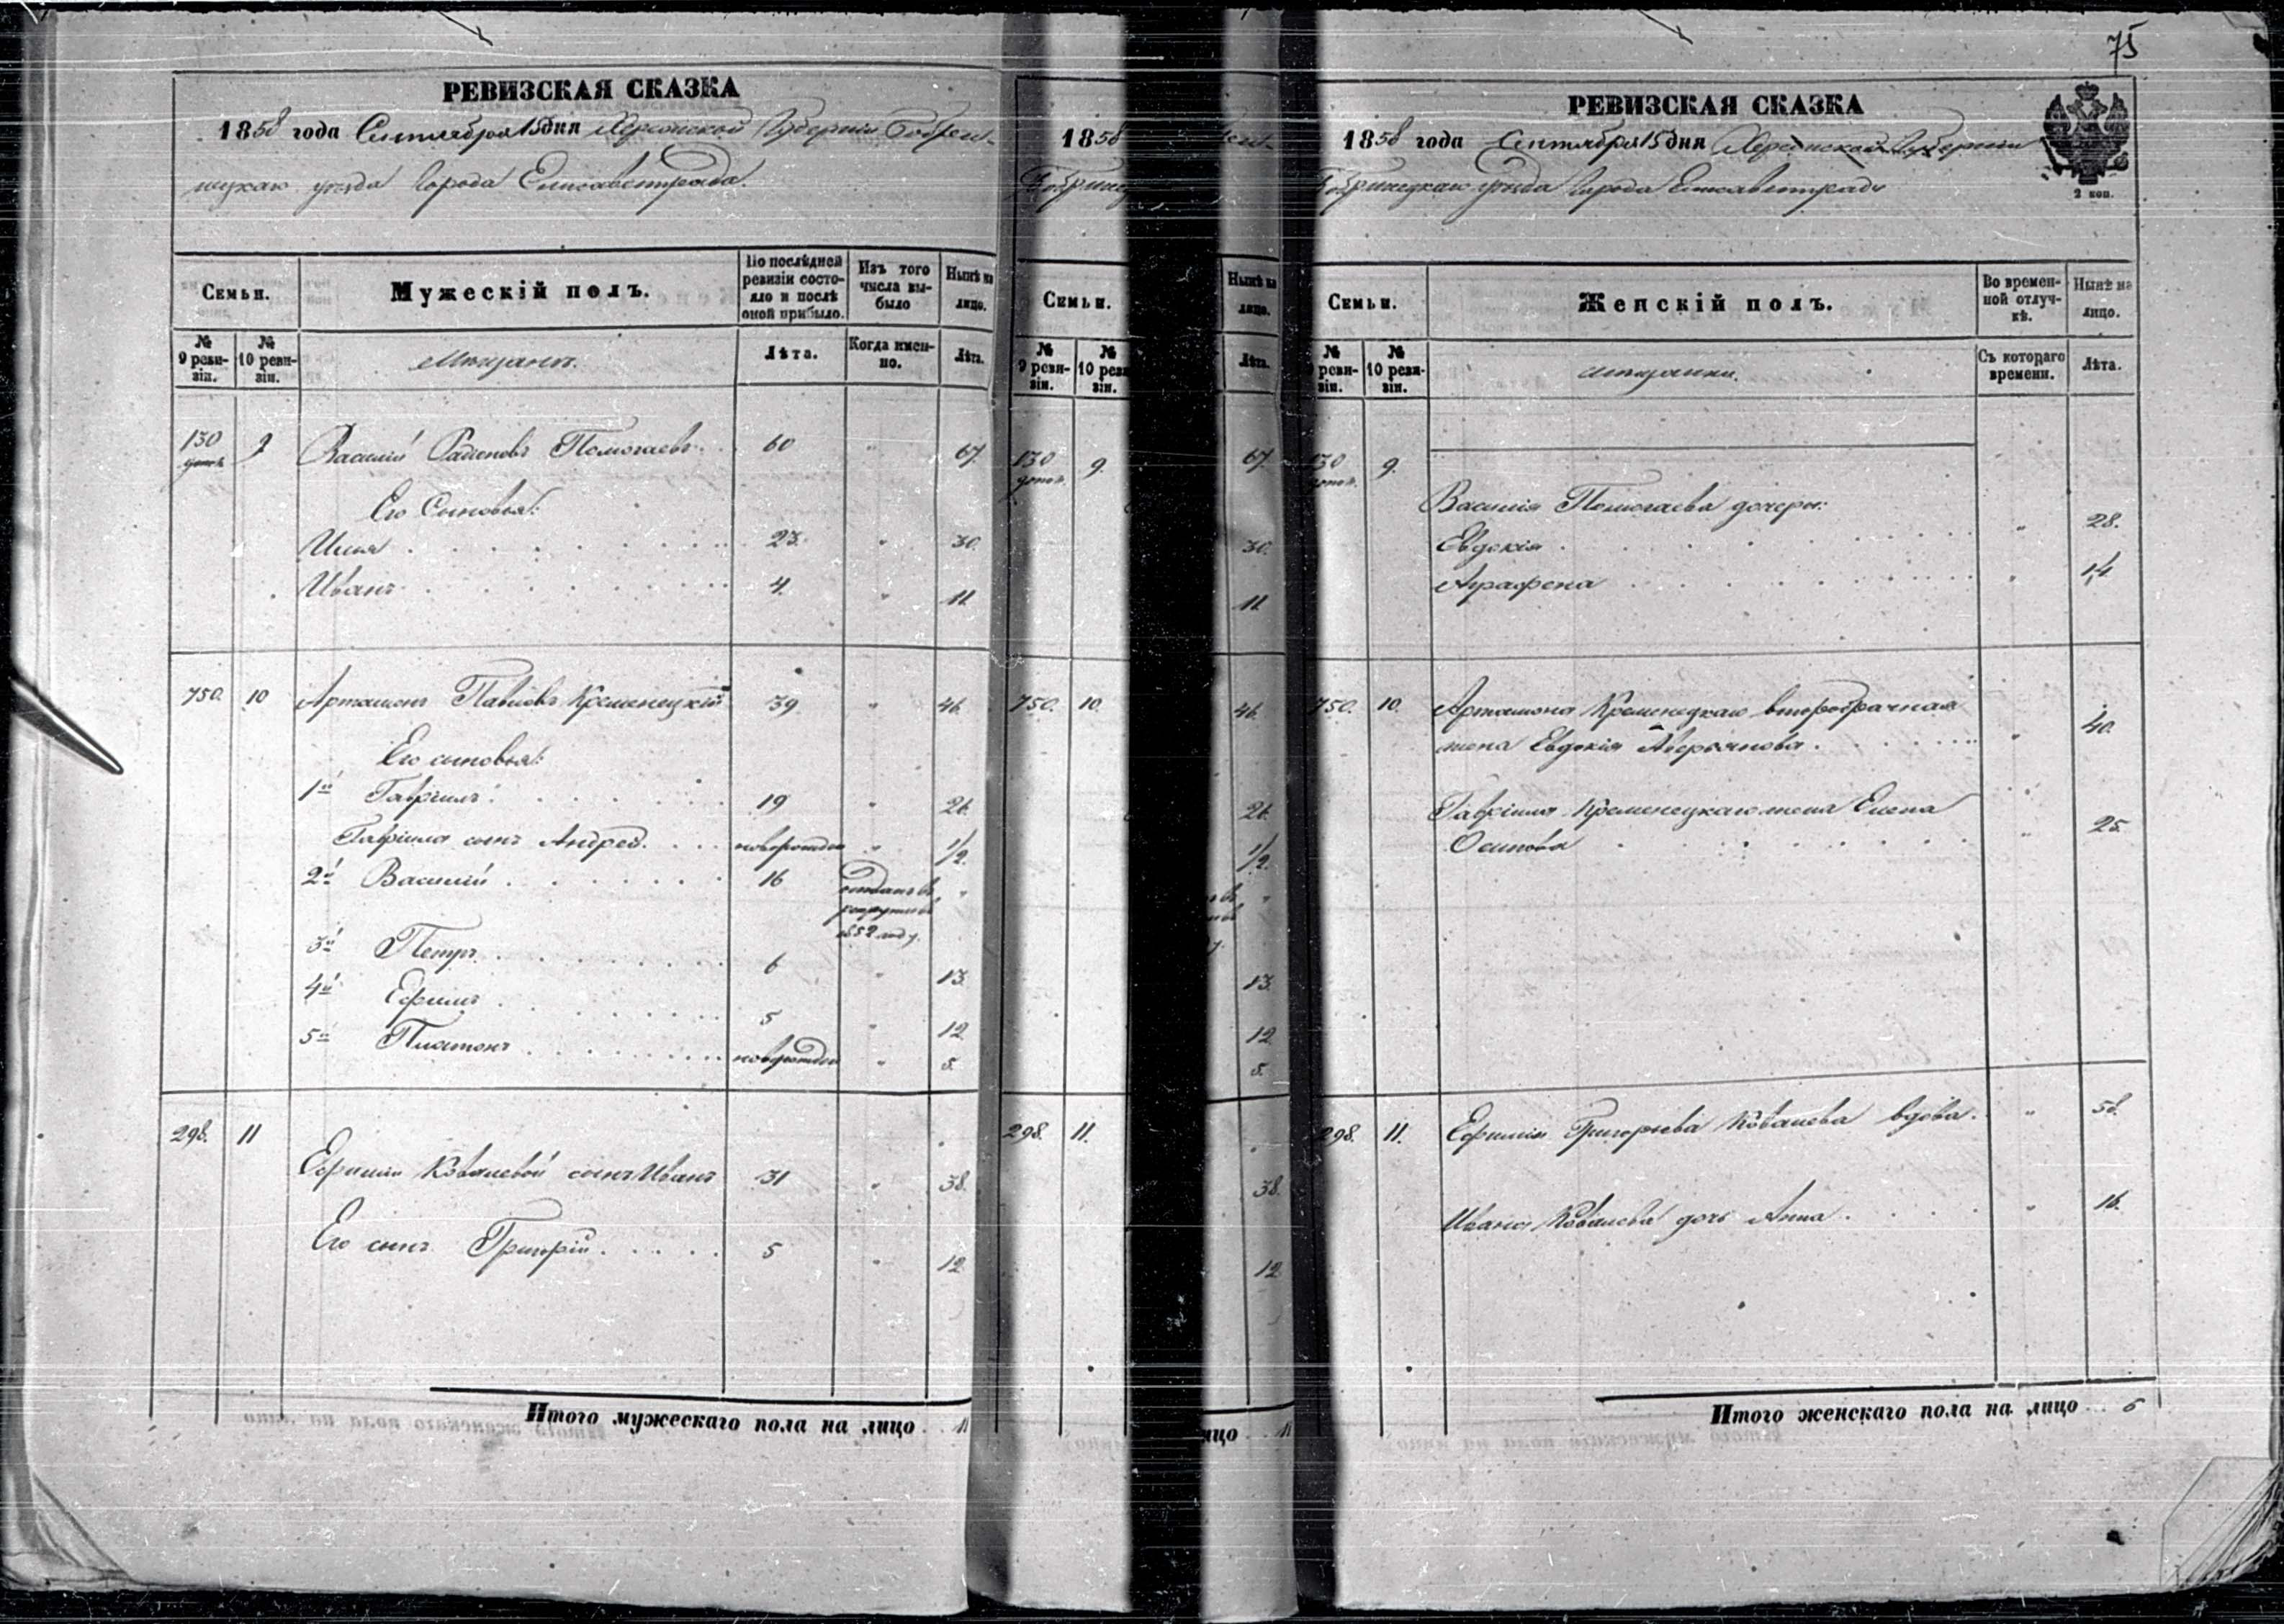 75
РЕВИЗСКАЯ СКАЗКА
1858 года Сентября 15 дня Херсонской Губерніи Бобрин-
ецкаго уѣзда Города Елисаветграда.
Семьи.
Мужескій полъ.
По послѣдней ревизіи состояло и послѣ оной прибыло.
Изъ того числа выбыло
Нынѣ на лицо.
№ 9 ревизіи.
№ 10 ревизіи.
Мѣщанъ.
Лѣта.
Когда именно.
Лѣта.
130 9 Василій Радионовъ Помогаевъ 60 " 67.
Его Сыновья:
Илья 23. " 30.
Иванъ 4. " 11.
750. 10 Артамонъ Павловъ Кременецкій 39 " 46.
Его сыновья:
1й Гавріилъ 19 " 26.
Гавріила сынъ Андрей новорожден " 1/2.
2й Василій 16 отданъ въ рекруты въ 1852 году. "
3й Петръ 6 " 13.
4й Ефимъ 5 " 12.
5й Платонъ новорожден " 5.
298. 11 Ефиміи Ковалевой сынъ Иванъ 31 " 38.
Его сынъ Григорій 5 " 12.
Итого мужескаго пола на лицо 11
1858
Бобринец
Семьи.
№ 9 ревизіи.
№ 10 реви зіи.
130 9.
750. 10.
298. 11.
Нынѣ на лицо.
Лѣта.
67.
30.
11.
46.
26.
1/2.
13.
12
5.
38.
12
лицо 11
РЕВИЗСКАЯ СКАЗКА
1858 года Сентября 15 дня Херсонской Губерніи
Бобринецкаго уѣзда Города Елисаветграда
2 коп.
Семьи.
Женскій полъ.
Во временной отлучкѣ.
Нынѣ на лицо.
№ 9 ревизіи.
№ 10 ревизіи.
Мѣщанки.
Съ котораго времени.
Лѣта.
130 9.
Василія Помогаева дочери:
Евдокія " 28.
Аграфена " 14
750. 10. Артамона Кременецкаго второбрачная
жена Евдокія Аверьянова. " 40.
Гавріила Кременецкаго жена Елена
Осипова " 25.
298. 11. Ефимія Григорьева Ковалева вдова. " 58.
Ивана Ковалева дочь Анна. " 16.
Итого женскаго пола на лицо 6